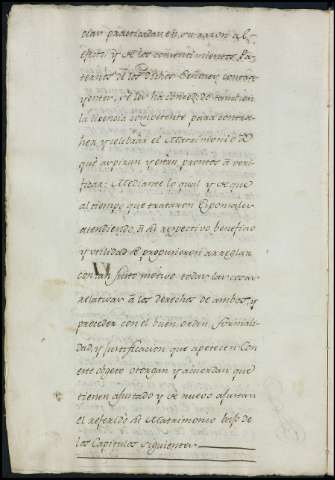 clar practicadas en su razon al
efecto y de los consentimientos Pa-
ternos de los dichos Señores contra-
yentes, se les ha conced.do tambien
la licencia competente para contra-
her y celebrar el Matrimonio á
que aspiran y estan prontos á veri-
ficar: Mediante lo qual y de que
al tiempo que trataron Esponsales
atendiendo á su respectivo beneficio
y utilidad se propusieron arreglar
con tan justo motivo todas las cosas
relativas á los derechos de ambos, y
proceder con el buen orden formali-
dad, y justificacion que apetecen Con
este objeto otorgan y acuerdan que
tienen ajustado y de nuevo ajustan
el referido su Matrimonio bajo de
los Capitulos siguientes